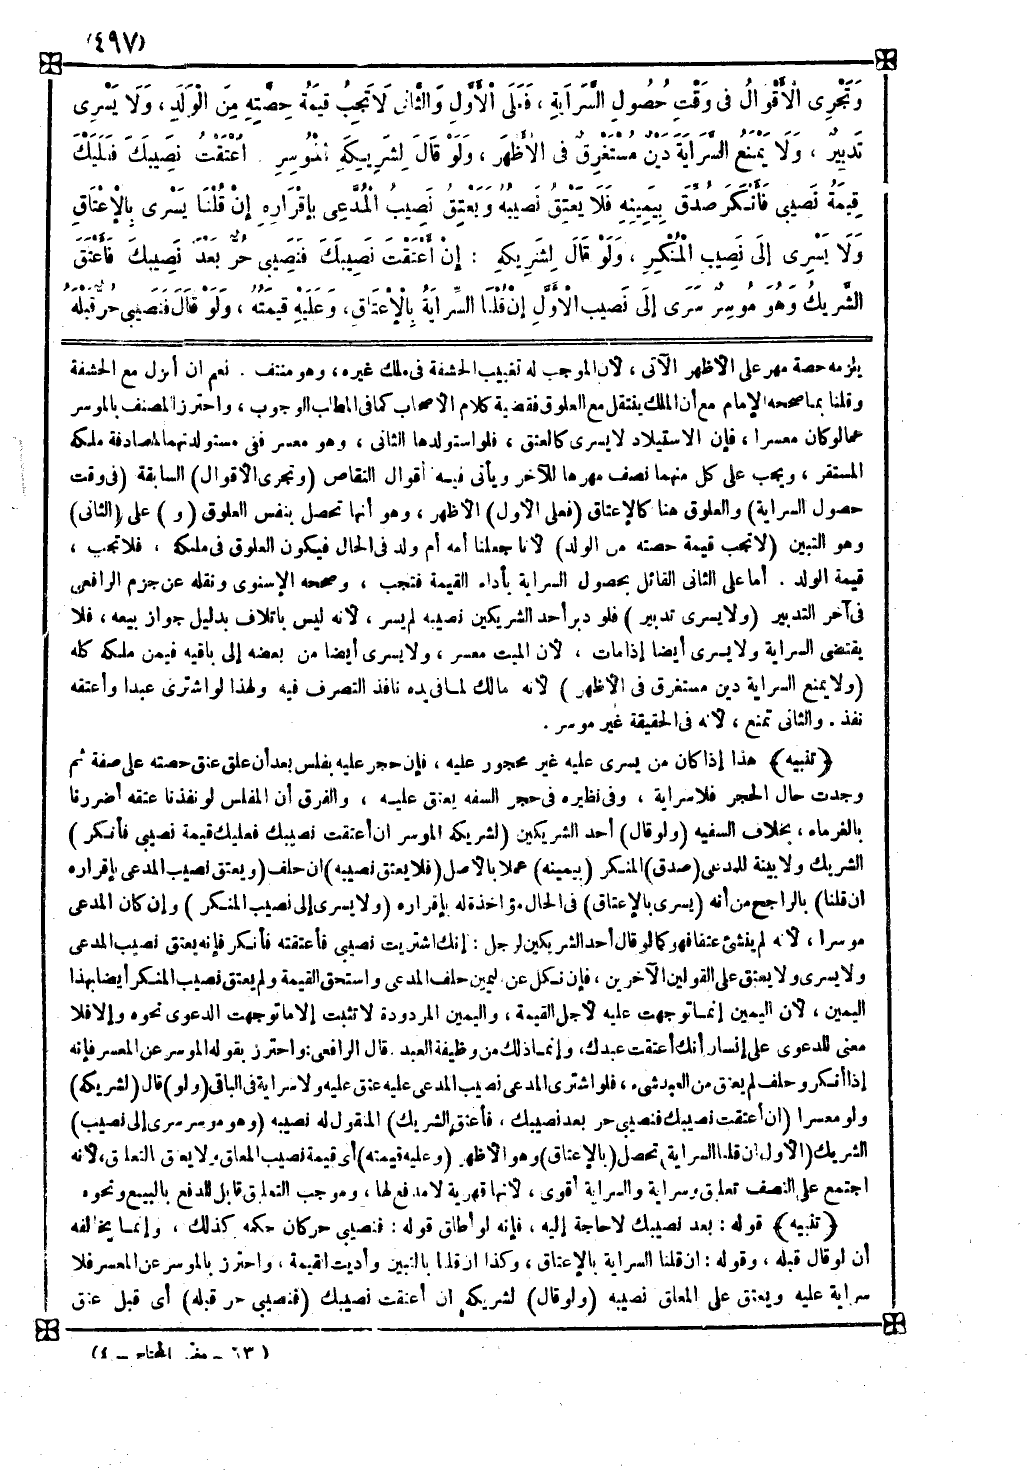 (٤٩٧)
وَتَجْرِى الْأَقْوَالُ فِى وَقْتِ حُصُولِ السِّرَايَةِ ، فَعَلَى الْأَوَّلِ وَالثَّانِى لَا تَجِبُ قِيمَةُ حِصَّتِهِ مِنَ الْوَلَدِ ، وَلَا يَسْرِى
تَدْبِيرٌ ، وَلَا يَمْنَعُ السِّرَايَةَ دَيْنٌ مُسْتَغْرِقٌ فِى الْأَظْهَرِ ، وَلَوْ قَالَ لِشَرِيكِهِ الْمُوسِرِ . أَعْتَقْتَ نَصِيبَكَ فَعَلَيْكَ
قِيمَةُ نَصِيبِى فَأَنْكَرَ صُدِّقَ بِيَمِينِهِ فَلَا يَعْتِقُ نَصِيبُهُ وَيَعْتِقُ نَصِيبُ الْمُدَّعِى بِإِقْرَارِهِ إِنْ قُلْنَا يَسْرِى بِالْإِعْتَاقِ
وَلَا يَسْرِى إِلَى نَصِيبِ الْمُنْكِرِ ، وَلَوْ قَالَ لِشَرِيكِهِ : إِنْ أَعْتَقْتَ نَصِيبَكَ فَنَصِيبِى حُرٌّ بَعْدَ نَصِيبِكَ فَأَعْتَقَ
الشَّرِيكُ وَهُوَ مُوسِرٌ سَرَى إِلَى نَصِيبِ الْأَوَّلِ إِنْ قُلْنَا السِّرَايَةُ بِالْإِعْتَاقِ ، وَعَلَيْهِ قِيمَتُهُ ، وَلَوْ قَالَ فَنَصِيبِى حُرٌّ قَبْلَهُ
يلزمه حصة مهر على الأظهر الآتى ، لأن الموجب له تغييب الحشفة فى ملك غيره ، وهو منتف . نعم ان أنزل مع الحشفة
وقلنا بما صححه الإمام مع أن الملك ينتقل مع العلوق فقضية كلام الأصحاب كما فى المطلب الوجوب ، واحترز المصنف بالموسر
عما لو كان معسرا ، فإن الاستيلاد لا يسرى كالعتق ، فلو استولدها الثانى ، وهو معسر فهى مستولدتهما لمصادفة ملكه
المستقر ، ويجب على كل منهما نصف مهرها للآخر ويأتى فيه أقوال التقاص (وتجرى الأقوال) السابقة (فى وقت
حصول السراية) والعلوق هنا كالإعتاق (فعلى الأول) الأظهر ، وهو أنها تحصل بنفس العلوق (و) على (الثانى)
وهو التبين (لا تجب قيمة حصته من الولد) لأنا جعلنا أمه أم ولد فى الحال فيكون العلوق فى ملكه ، فلا تجب ،
قيمة الولد . أما على الثانى القائل بحصول السراية بأداء القيمة فتجب ، وصححه الإسنوى ونقله عن جزم الرافعى
فى آخر التدبير (ولا يسرى تدبير) فلو دبر أحد الشريكين نصيبه لم يسر ، لأنه ليس باتلاف بدليل جواز بيعه ، فلا
يقتضى السراية ولا يسرى أيضا إذا مات ، لأن الميت معسر ، ولا يسرى أيضا من بعضه إلى باقيه فيمن ملكه كله
(ولا يمنع السراية دين مستغرق فى الأظهر) لأنه مالك لما فى يده نافذ التصرف فيه ولهذا لو اشترى عبدا وأعتقه
نفذ . والثانى تمنع ، لأنه فى الحقيقة غير موسر .
﴿تنبيه﴾ هذا إذا كان من يسرى عليه غير محجور عليه ، فإن حجر عليه بفلس بعد أن علق عتق حصته على صفة ثم
وجدت حال الحجر فلا سراية ، وفى نظيره فى حجر السفه يعتق عليه ، والفرق أن المفلس لو نفذنا عتقه أضررنا
بالغرماء ، بخلاف السفيه (ولو قال) أحد الشريكين (لشريكه الموسر ان أعتقت نصيبك فعليك قيمة نصيبى فأنكر)
الشريك ولا بينة للمدعى (صدق) المنكر (بيمينه) عملا بالأصل (فلا يعتق نصيبه) ان حلف (ويعتق نصيب المدعى بإقراره
ان قلنا) بالراجح من أنه (يسرى بالإعتاق) فى الحال مؤاخذة له بإقراره (ولا يسرى إلى نصيب المنكر) وإن كان المدعى
موسرا ، لأنه لم ينشئ عتقا فهو كما لو قال أحد الشريكين لرجل : إنك اشتريت نصيبى فأعتقته فأنكر فإنه يعتق نصيب المدعى
ولا يسرى ولا يعتق على القولين الآخرين ، فإن نكل عن اليمين حلف المدعى واستحق القيمة ولم يعتق نصيب المنكر أيضا بهذا
اليمين ، لأن اليمين إنما توجهت عليه لأجل القيمة ، واليمين المردودة لا تثبت إلا ما توجهت الدعوى نحوه وإلا فلا
معنى للدعوى على إنسان أنك أعتقت عبدك ، وإنما ذلك من وظيفة العبد . قال الرافعى : واحترز بقوله الموسر عن المعسر فإنه
إذا أنكر وحلف لم يعتق من العبد شىء ، فلو اشترى المدعى نصيب المدعى عليه عتق عليه ولا سراية فى الباقى (ولو) قال (لشريكه)
ولو معسرا (ان أعتقت نصيبك فنصيبى حر بعد نصيبك ، فأعتق الشريك) المقول له نصيبه (وهو موسر سرى إلى نصيب)
الشريك (الأول ان قلنا السراية) تحصل (بالإعتاق) وهو الأظهر (وعليه قيمته) أى قيمة نصيب المعلق ولا يعتق التعلق ، لأنه
اجتمع على النصف تعليق وسراية والسراية أقوى ، لأنها قهرية لا مدفع لها ، وموجب التعليق قابل للدفع بالبيع ونحوه
﴿تنبيه﴾ قوله : بعد نصيبك لا حاجة إليه ، فإنه لو أطلق قوله : فنصيبى حر كان حكمه كذلك ، وإنما يخالفه
أن لو قال قبله ، وقوله : ان قلنا السراية بالإعتاق ، وكذا ان قلنا بالتبين وأديت القيمة ، واحترز بالموسر عن المعسر فلا
سراية عليه ويعتق على المعلق نصيبه (ولو قال) لشريكه ان أعتقت نصيبك (فنصيبى حر قبله) أى قبل عتق
(٦٣ – مغنى المحتاج – ٤)